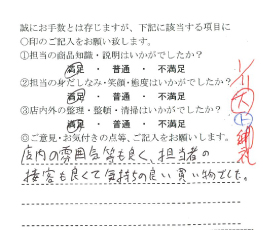 誠にお手数とは存じますが、下記に該当する項目に
○印のご記入をお願い致します。
①担当の商品知識・説明はいかがでしたか？
満足 ・ 普通 ・ 不満足
②担当の身だしなみ・笑顔・態度はいかがでしたか？
満足 ・ 普通 ・ 不満足
③店内外の整理・整頓・清掃はいかがでしたか？
満足 ・ 普通 ・ 不満足
◎ご意見・お気付きの点等、ご記入をお願いします。
店内の雰囲気等も良く、担当者の
接客も良くて気持ちの良い買い物でした。